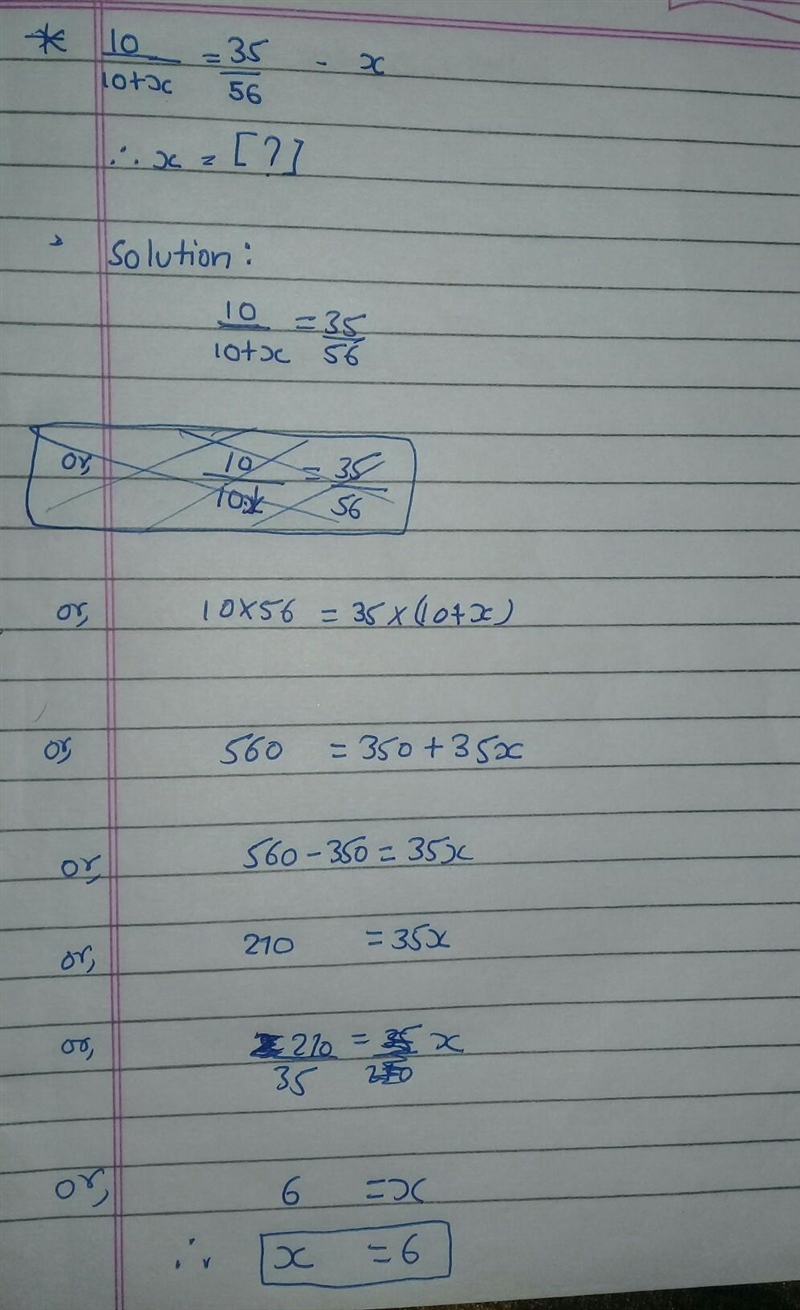 * 10/10+x = 35/56 - x
∴ x = [?]
> Solution:
10/10+x = 35/56
or, 10/10x = 35/56
or, 10×56 = 35×(10+x)
or, 560 = 350+35x
or, 560-350=35x
or, 210 = 35x
or, 210/35 = x
or, 6 =x
∴ x =6